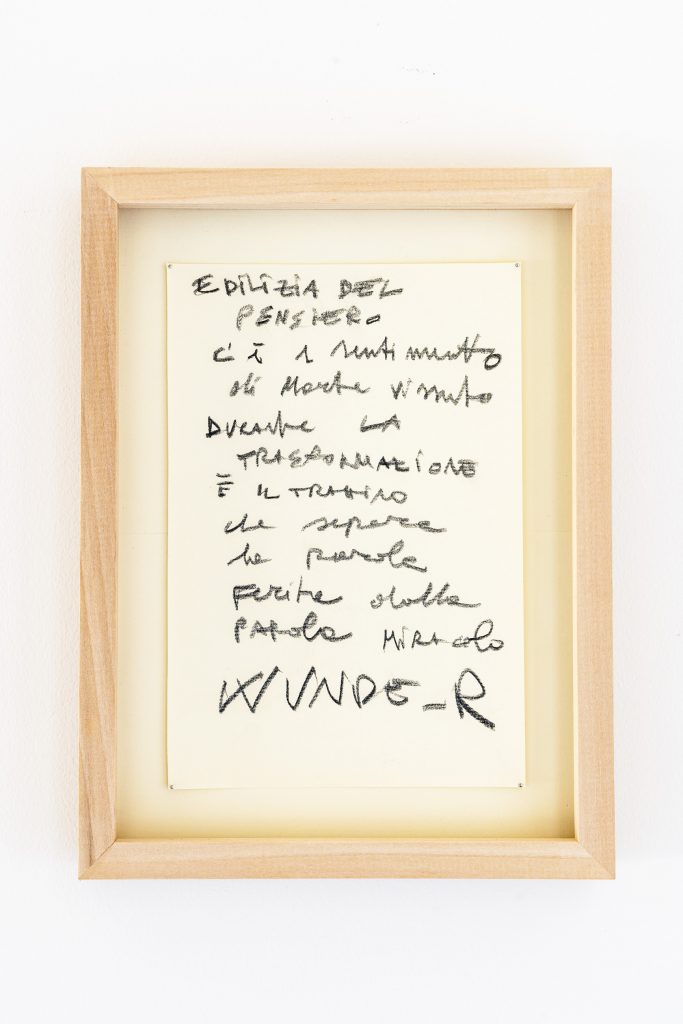 EDILIZIA DEL
PENSIERO
c'è il sentimento
di Morte vissuto
DURANTE LA
TRASFORMAZIONE
È IL TRATTINO
che separa
la parola
Ferita dalla
PAROLA MIRACOLO
WUNDE_R